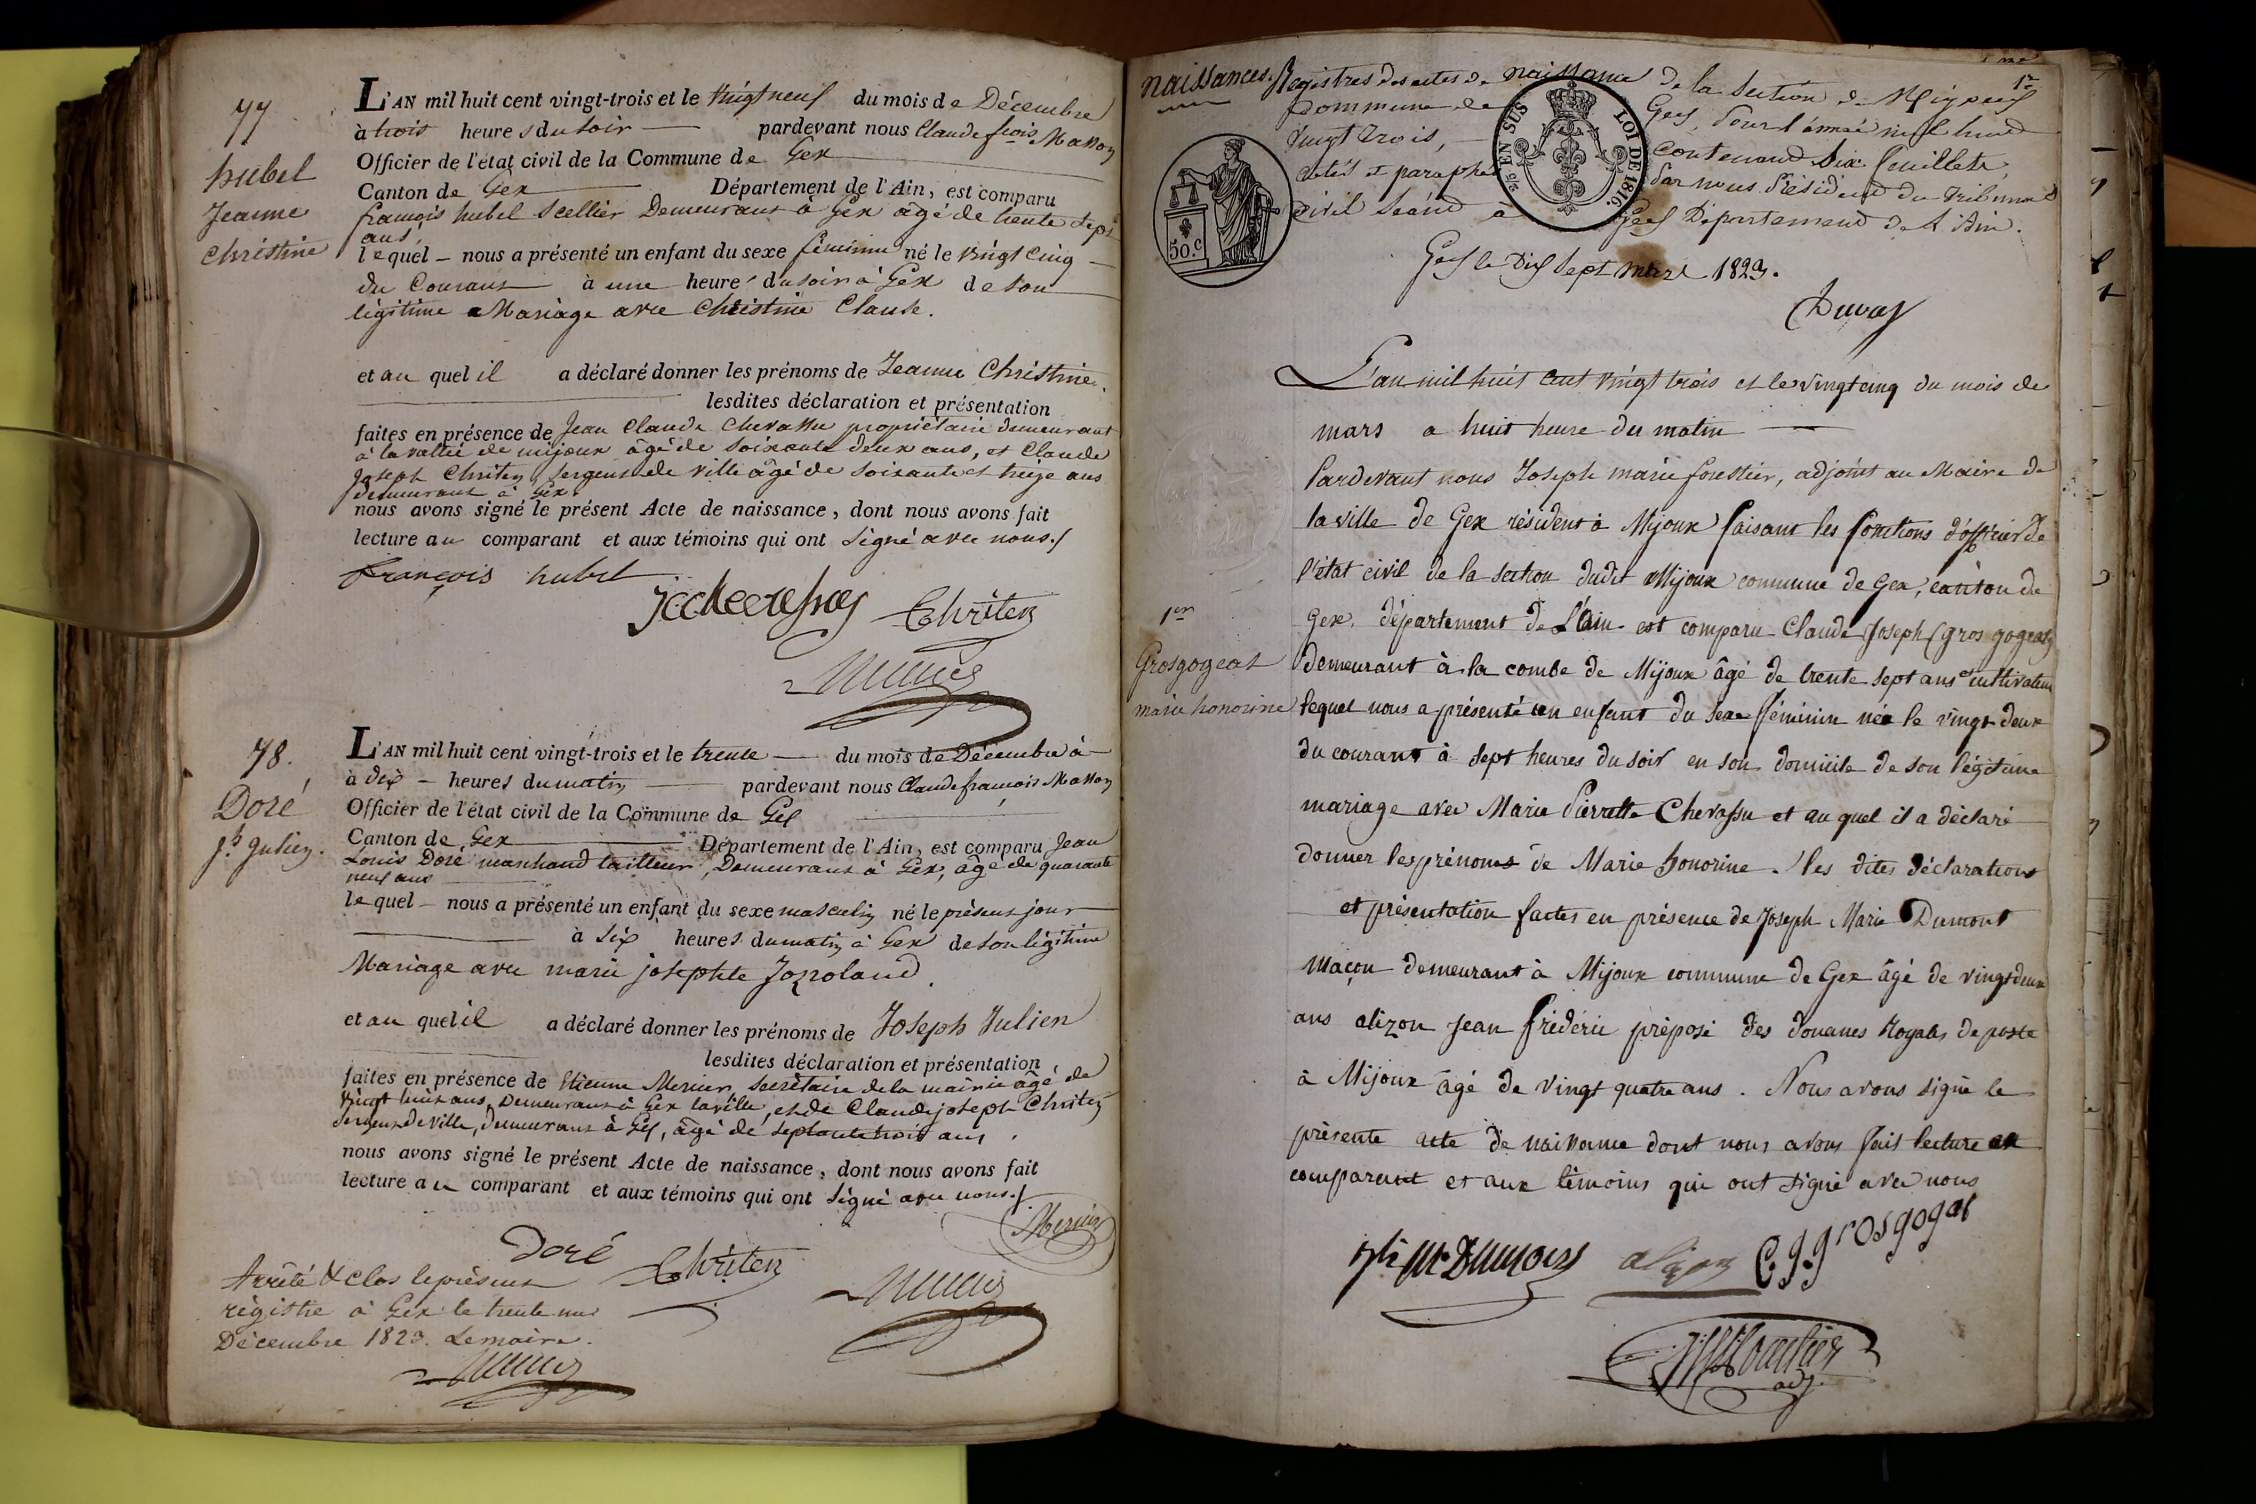 77
hubel
Jeanne
Christine
L'AN mil huit cent vingt-trois et le vingt neuf du mois de Décembre
à trois heures du soir pardevant nous Claude fcois Masson
Officier de l'état civil de la Commune de Gex
Canton de Gex Département de l'Ain, est comparu
françois hubel Scellier Demeurant à Gex âgé de trente sept
ans
lequel nous a présenté un enfant du sexe féminin né le vingt cinq
du Courant à une heure du soir à Gex de son
légitime Mariage avec Christine Clause.
et au quel il a déclaré donner les prénoms de Jeanne Christine.
lesdites déclaration et présentation
faites en présence de Jean Claude Chevassu propriétaire demeurant
à la vallée de mijoux âgé de soixante deux ans, et Claude
Joseph Christen sergent de ville âgé de soixante et treize ans
demeurant à Gex
nous avons signé le présent Acte de naissance, dont nous avons fait
lecture au comparant et aux témoins qui ont signé avec nous./
françois hubel
Christen
78.
Doré
jh. Julien.
L'AN mil huit cent vingt-trois et le trente du mois de Décembre à
à dix heures du matin pardevant nous Claude francois Masson
Officier de l'état civil de la Commune de Gex
Canton de Gex Département de l'Ain, est comparu Jean
Louis Doré marchand tailleur, Demeurant à Gex, âgé de quarante
neuf ans
lequel nous a présenté un enfant du sexe masculin né le présent jour
à six heures du matin à Gex de son légitime
Mariage avec marie josephte
et au quel il a déclaré donner les prénoms de Joseph Julien
lesdites déclaration et présentation
faites en présence de Etienne Mercier, Secrétaire de la mairie âgé de
vingt huit ans, Demeurant à Gex la ville, et de Claude joseph Christen
sergent de ville, demeurant à Gex, âgé de septante trois ans.
nous avons signé le présent Acte de naissance, dont nous avons fait
lecture au comparant et aux témoins qui ont signé avec nous./
Mercier
Doré Christen
Arrêté & clos le présent
régistre à Gex le trente un
Décembre 1823. Le maire.
naissances. Registres des actes de naissance de la Section de Mijoux
1er
Commune de Gex, pour l'année mil huit
vingt trois, contenant Six feuillets,
cotés et paraphés par nous Président du tribunal
Civil Séant à Gex Département de l'Ain.
EN SUS LOI DE 1816.
50. C
Gex le Dix Sept mars 1823.
Duval
L'an mil huit cent vingt trois et le vingt cinq du mois de
mars a huit heure du matin
Pardevant nous Joseph Marie forestier, adjoint au Maire de
la ville de Gex résident à Mijoux faisant les fonctions d'officier de
l'état civil de la section dudit Mijoux commune de Gex, canton de
1er
Gex, département de L'Ain est comparu Claude Joseph Gros gogeat
Grosgogeat
marie honorine
demeurant à la combe de Mijoux âgé de trente sept ans cultivateur
lequel nous a présenté un enfant du sexe féminin née le vingt deux
du courant à sept heures du soir en son domicile de son légitime
mariage avec Marie Pierrette Chevassu et au quel il a déclaré
donner les prénoms de Marie honorine. les dites déclarations
et présentation faites en présence de Joseph Marie Dumont
Maçon demeurant à Mijoux commune de Gex âgé de vingt deux
ans alizon Jean frédéric préposé des douanes Royales de poste
à Mijoux âgé de vingt quatre ans. Nous avons signé le
présente acte de naissance dont nous avons fait lecture au
comparant et aux témoins qui ont signé avec nous
jh Me Dumont alizon C. J. grosgogat
adj.